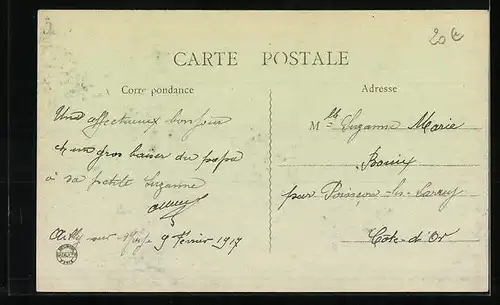 20 €
CARTE POSTALE
Correspondance
Adresse
Un affectueux bonjour
et un gros baiser du papa
à sa petite Suzanne
Ailly sur Noye 9 février 1917
Mlle Suzanne Marie
par Poinçon-les-Larrey
Côte-d'Or